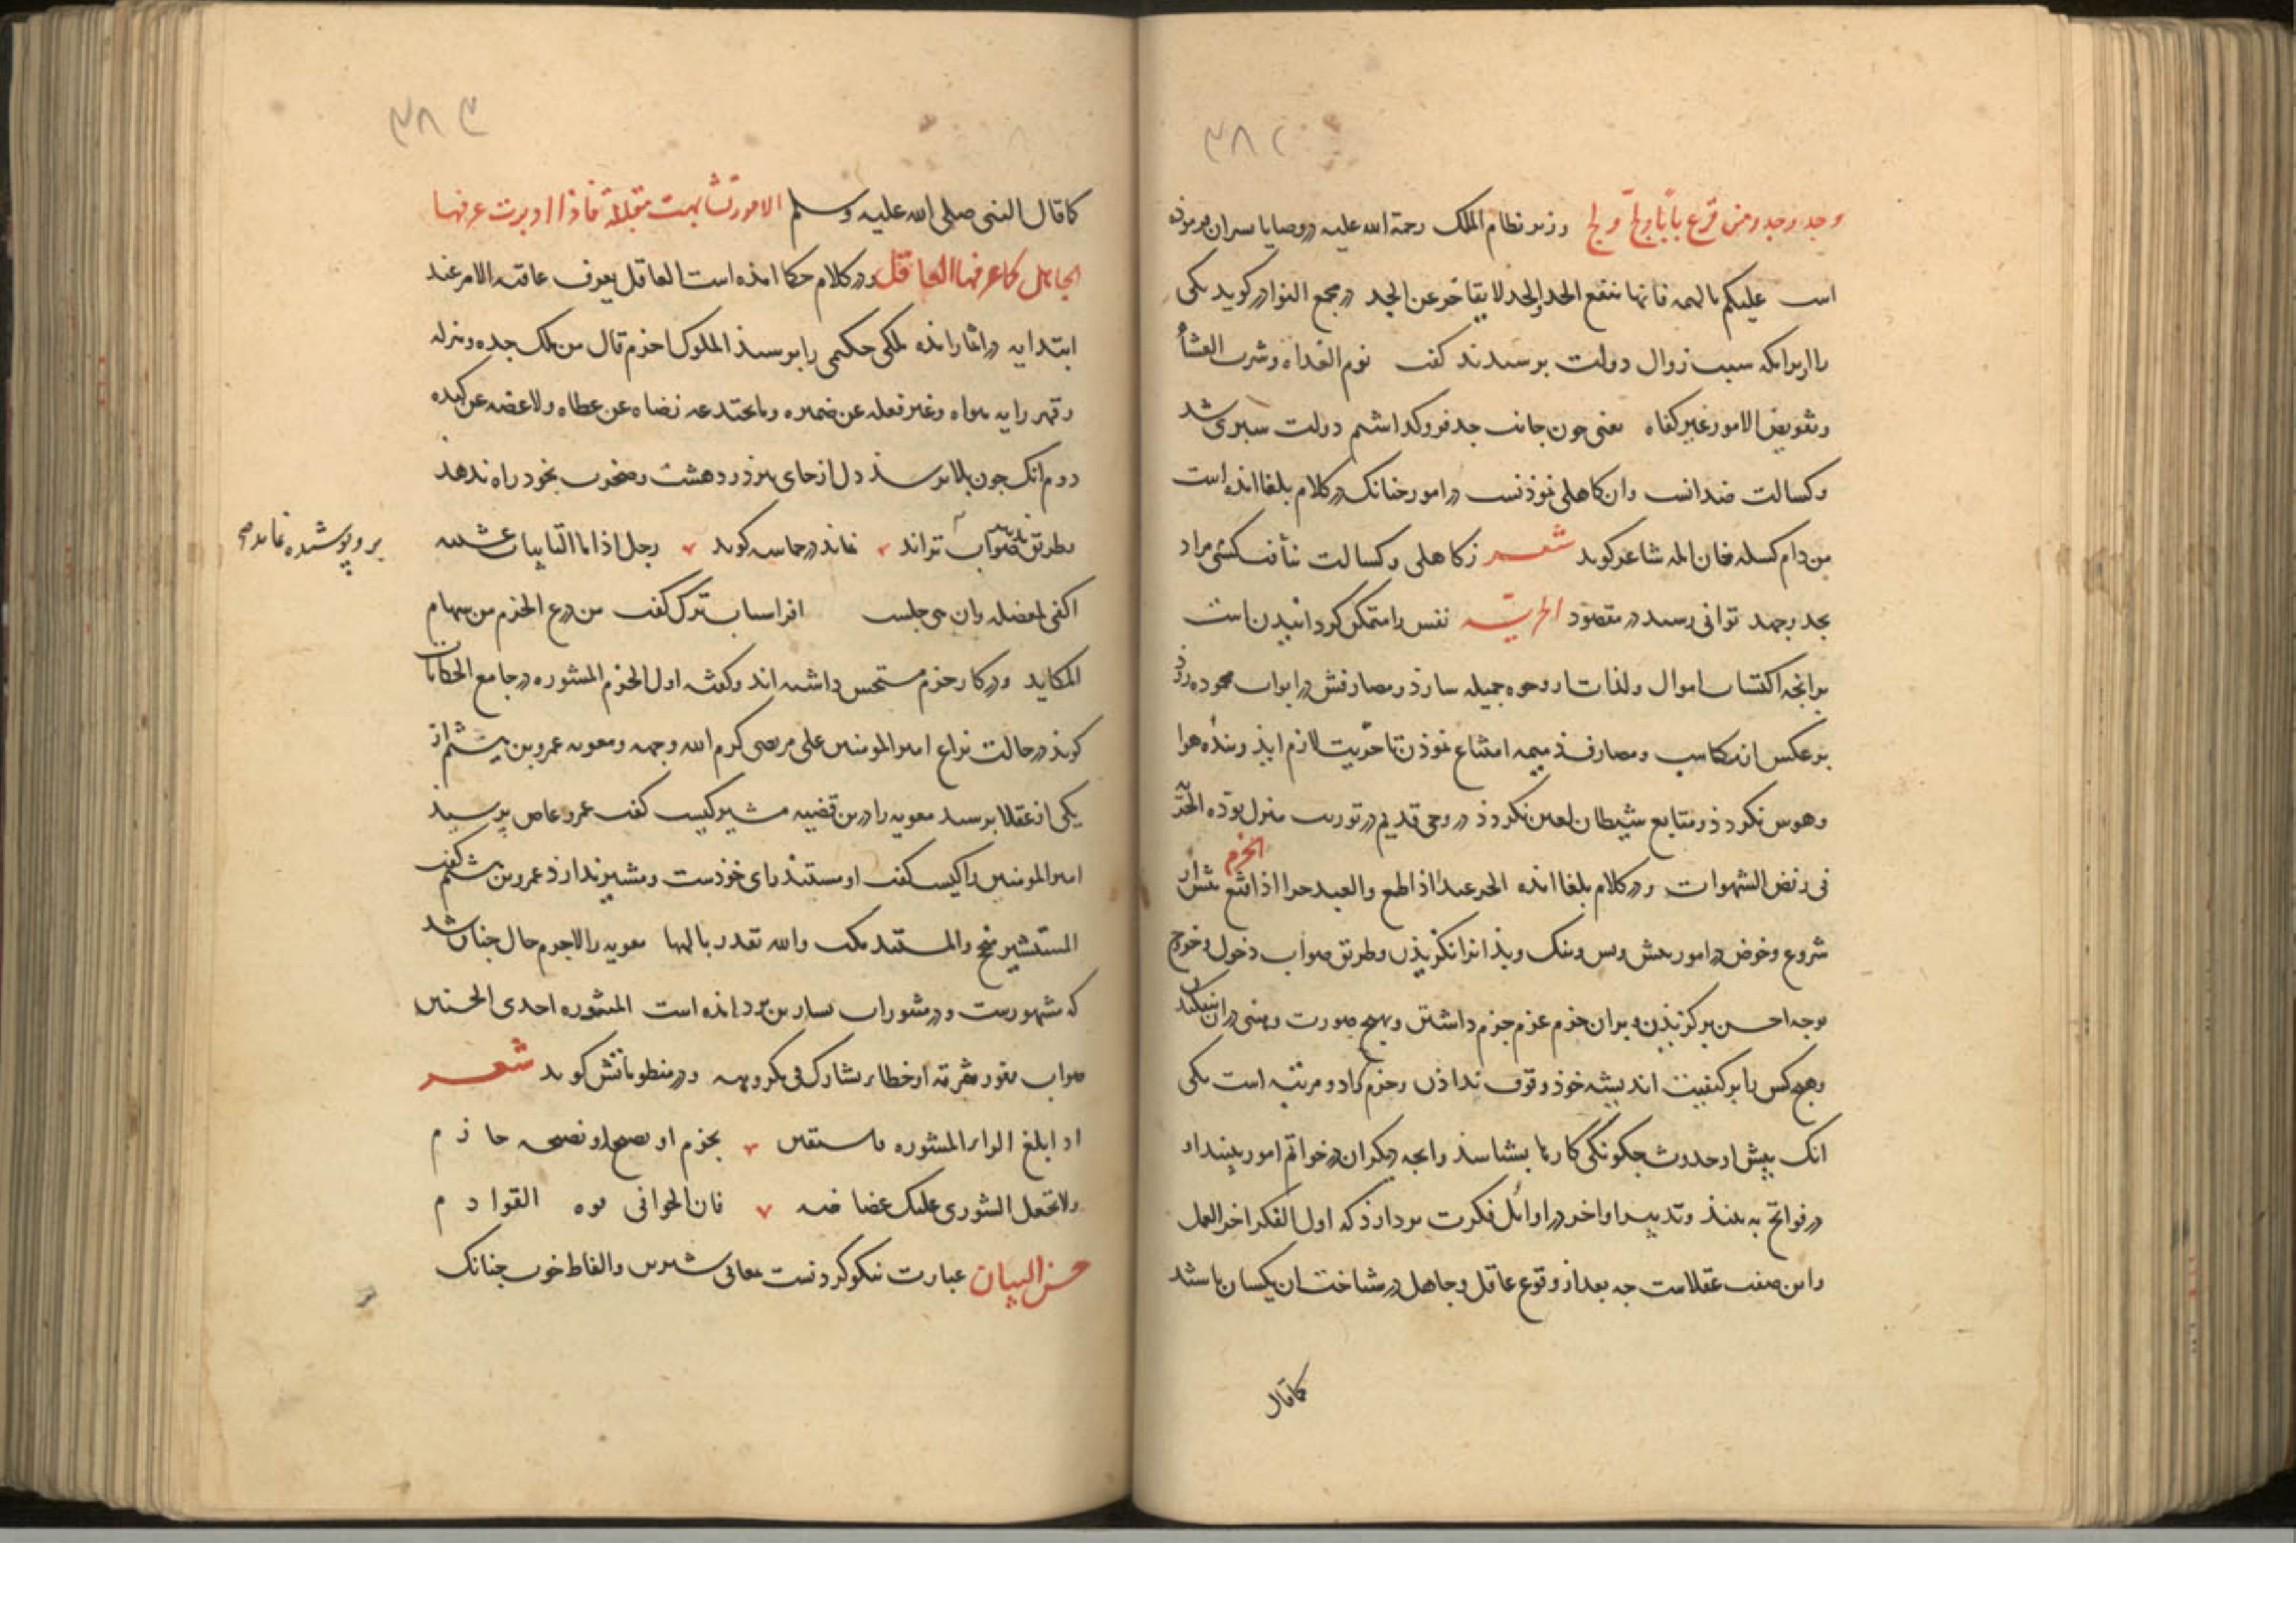 ۳۸۲
وجد وجد ومن قرع بابا ولج ولج وزیر نظام الملک رحمة الله علیه در وصایا بسران فرموده
است علیکم بالهمه فانها الجد لا عن الجد در مجمع النوادر کوید یکی
را از برامکه سبب زوال دولت برسیدند کفت نوم الغداه وشرب العشاء
وتفویض الامور غیر کفاه یعنی جون جانب جد فرو کداشتم دولت سبری شد
وکسالت ضد انست وان کاهلی نموذنست در امور جنانک در کلام بلغا امذه است
من دام کسله خاب امله شاعر کوید شعر ز کاهلی وکسالت نیافت کس مراد
بجد وجهد توانی رسید در مقصود الحریة نفس را متمکن کردانیدن است
برانجه اکتساب اموال ولذات از وجوه جمیله سازذ ومصارفش در ابواب محموده وذ
بر عکس از مکاسب ومصارف ذمیمه امتناع نموذن تا حریت لازم ایذ وبنده هوا
وهوس نکردذ ومتابع شیطان لعین نکردذ در وحی قدیم در توریت منزل بوذه الحریة
فی رفض الشهوات ودر کلام بلغا امده الحر عبد اذا طمع والعبد حر اذا قنع الحزم
شروع وخوض در امور بیش وبس ونیک وبذ انرا نکریذن وطریق صواب دخول وخروج
بوجه احسن برکزیذن وبران حزم عزم جزم داشتن وبهیج صورت وهنی دران
وهیج کس را بر کیفیت اندیشه خوذ وقوف نداذن وحزم را دو مرتبه است یکی
انک بیش از حدوث جکونکی کارها بشناسذ وانجه دیکران در خواتم امور بینند او
در فواتح به بیند وتدبیر اواخر در اوائل فکرت بردارذ که اول الفکر اخر العمل
واین صفت عقلاست جه بعد از وقوع عاقل وجاهل در شناختان یکسان باشند
کاقال
۳۸۳
کاقال النبی صلی الله علیه وسلم الامور تشابهت مقبلة فاذا ادبرت عرفها
الجاهل کما عرفها العاقل ودر کلام حکما امذه است العاقل یعرف عاقبة الامر عند
ابتدایه در اثار امده ملکی حکیمی را برسیذ الملوک احزم قال من ملک جده وهزله
وقهر رایه هواه وعبر فعله عن ضمیره ولم یختدعه رضاه عن عطاه ولا غضبه عن کیده
دوم انک جون بلا برسذ دل از جای نبرذ ودهشت وضجرت بخود راه ندهد
بطریق صواب تدبیر تواند نماند در حماسه کوید رجل اذا ما النایبات غشینه
بر وپوشیده نماند صح
اکفی لمعضله وان هی جلت افراسیاب ترک کفت من درع الحزم من سهام
المکاید ودر کار حزم مستحسن داشته اند وکفته اول الحزم المشوره در جامع الحکایات
کوید در حالت نزاع امیر المومنین علی مرتضی کرم الله وجهه ومعویه عمرو بن از
یکی از عقلا برسید معویه را درین قضیه مشیر کیست کفت عمرو عاص برسیذ
امیر المومنین را کیست کفت او مستبد برای خوذست ومشیر ندارذ عمرو بن کفت
المستشیر منجح والمستبد والله تقدر بالهما معویه را لاجرم حال جنان شد
که مشهورست ودر مشورات بشار بن برد امده است المشوره احدی الحسنین
صواب یفوز بثمرته او خطا یشارک فی مکروهه ودر منظوماتش کوید شعر
اذا بلغ الرای المشوره فاستعن بحزم او نصیح او نصیحه حازم
ولا تجعل الشوری علیک غضاضه فان الخوافی قوه القوادم
حسن البیان عبارت نیکو کردنست معانی شیرین والفاظ خوب جنانک